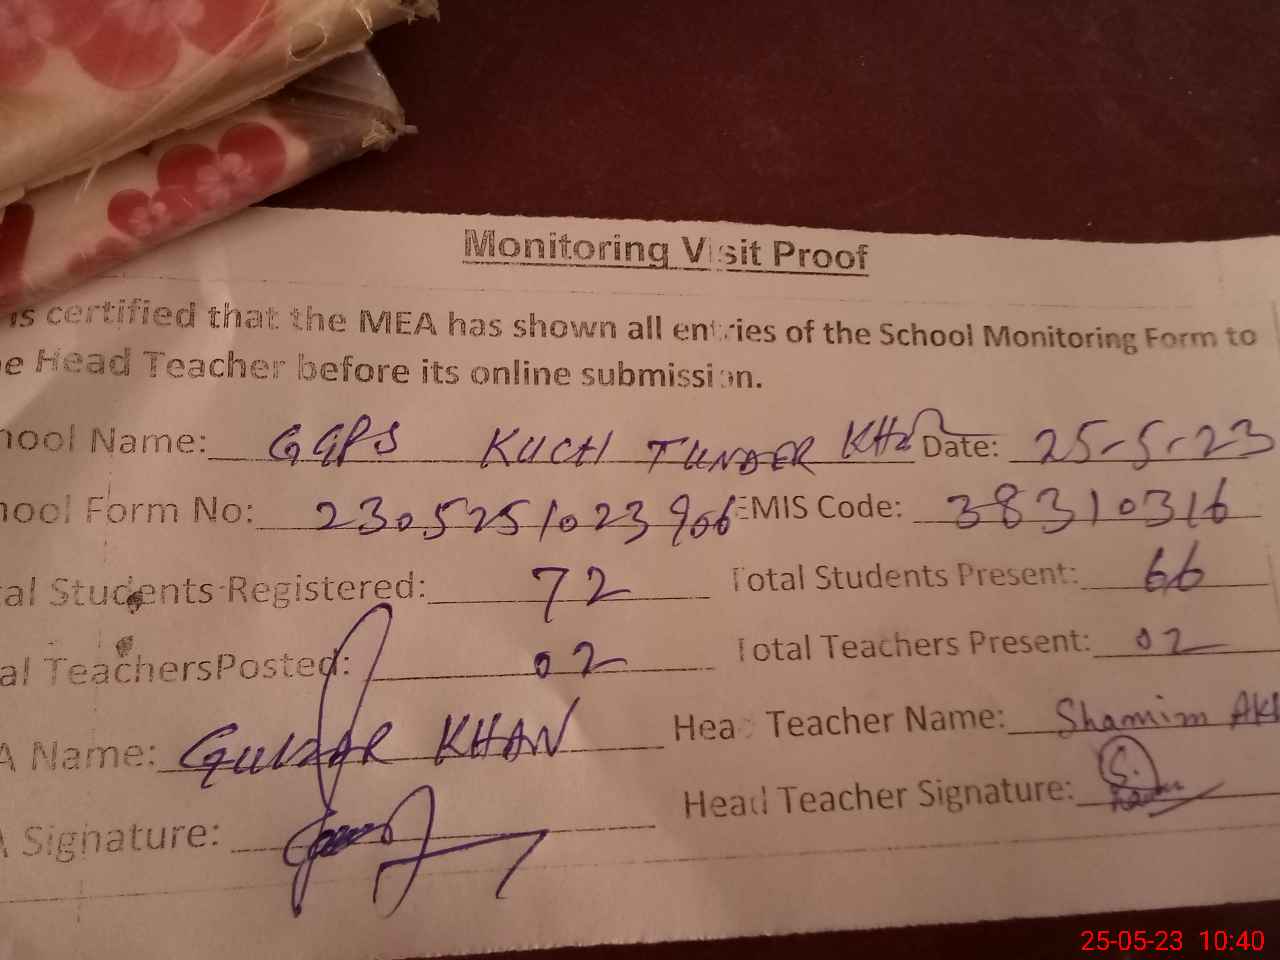 Monitoring Visit Proof
is certified that the MEA has shown all entries of the School Monitoring Form to
e Head Teacher before its online submission.
hool Name: GGPS KUCH TUNDER KHAN Date: 25-5-23
hool Form No: 2305251023906 EMIS Code: 38310316
tal Students Registered: 72 Total Students Present: 66
al TeachersPosted: 02 Total Teachers Present: 02
A Name: GULZAR KHAN Head Teacher Name: Shamim AK
A Signature: Head Teacher Signature:
25-05-23 10:40